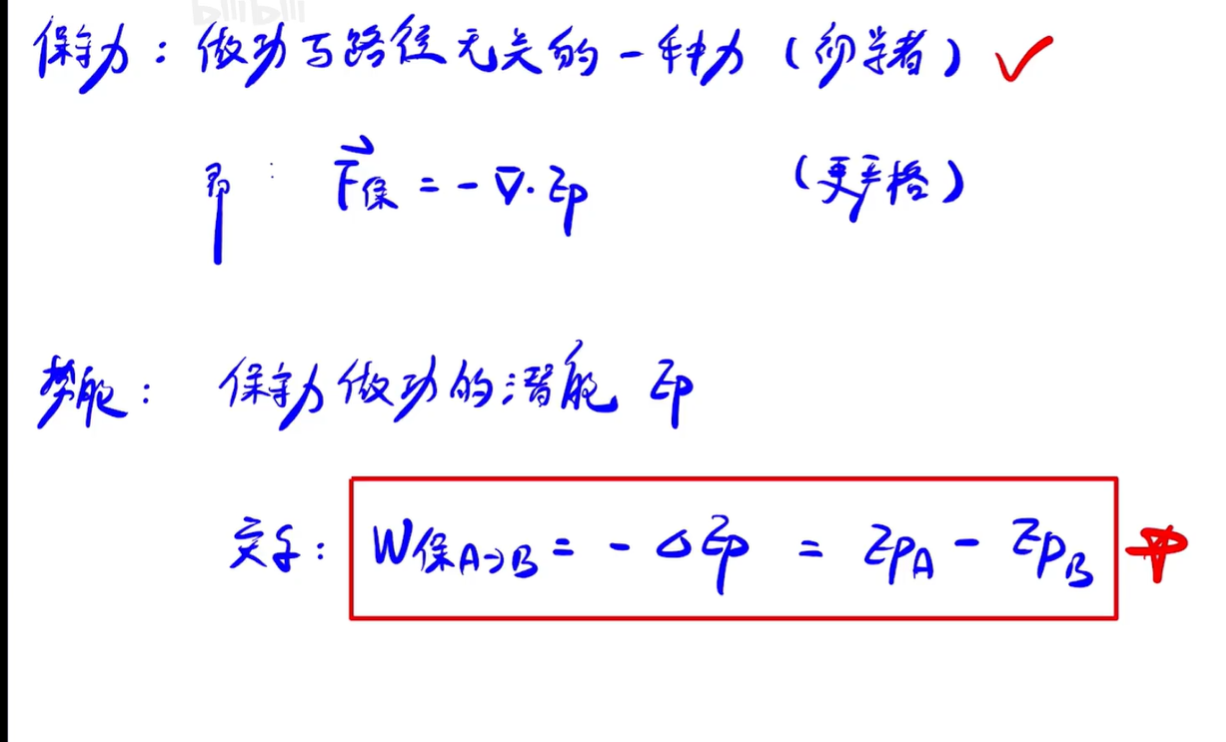 bilibili
保守力：做功与路径无关的一种力（初学者）✓
即： F⃗保 = - ∇· Ep （更严格）
势能： 保守力做功的潜能 Ep
W保A→B = - ΔEp = EpA - EpB